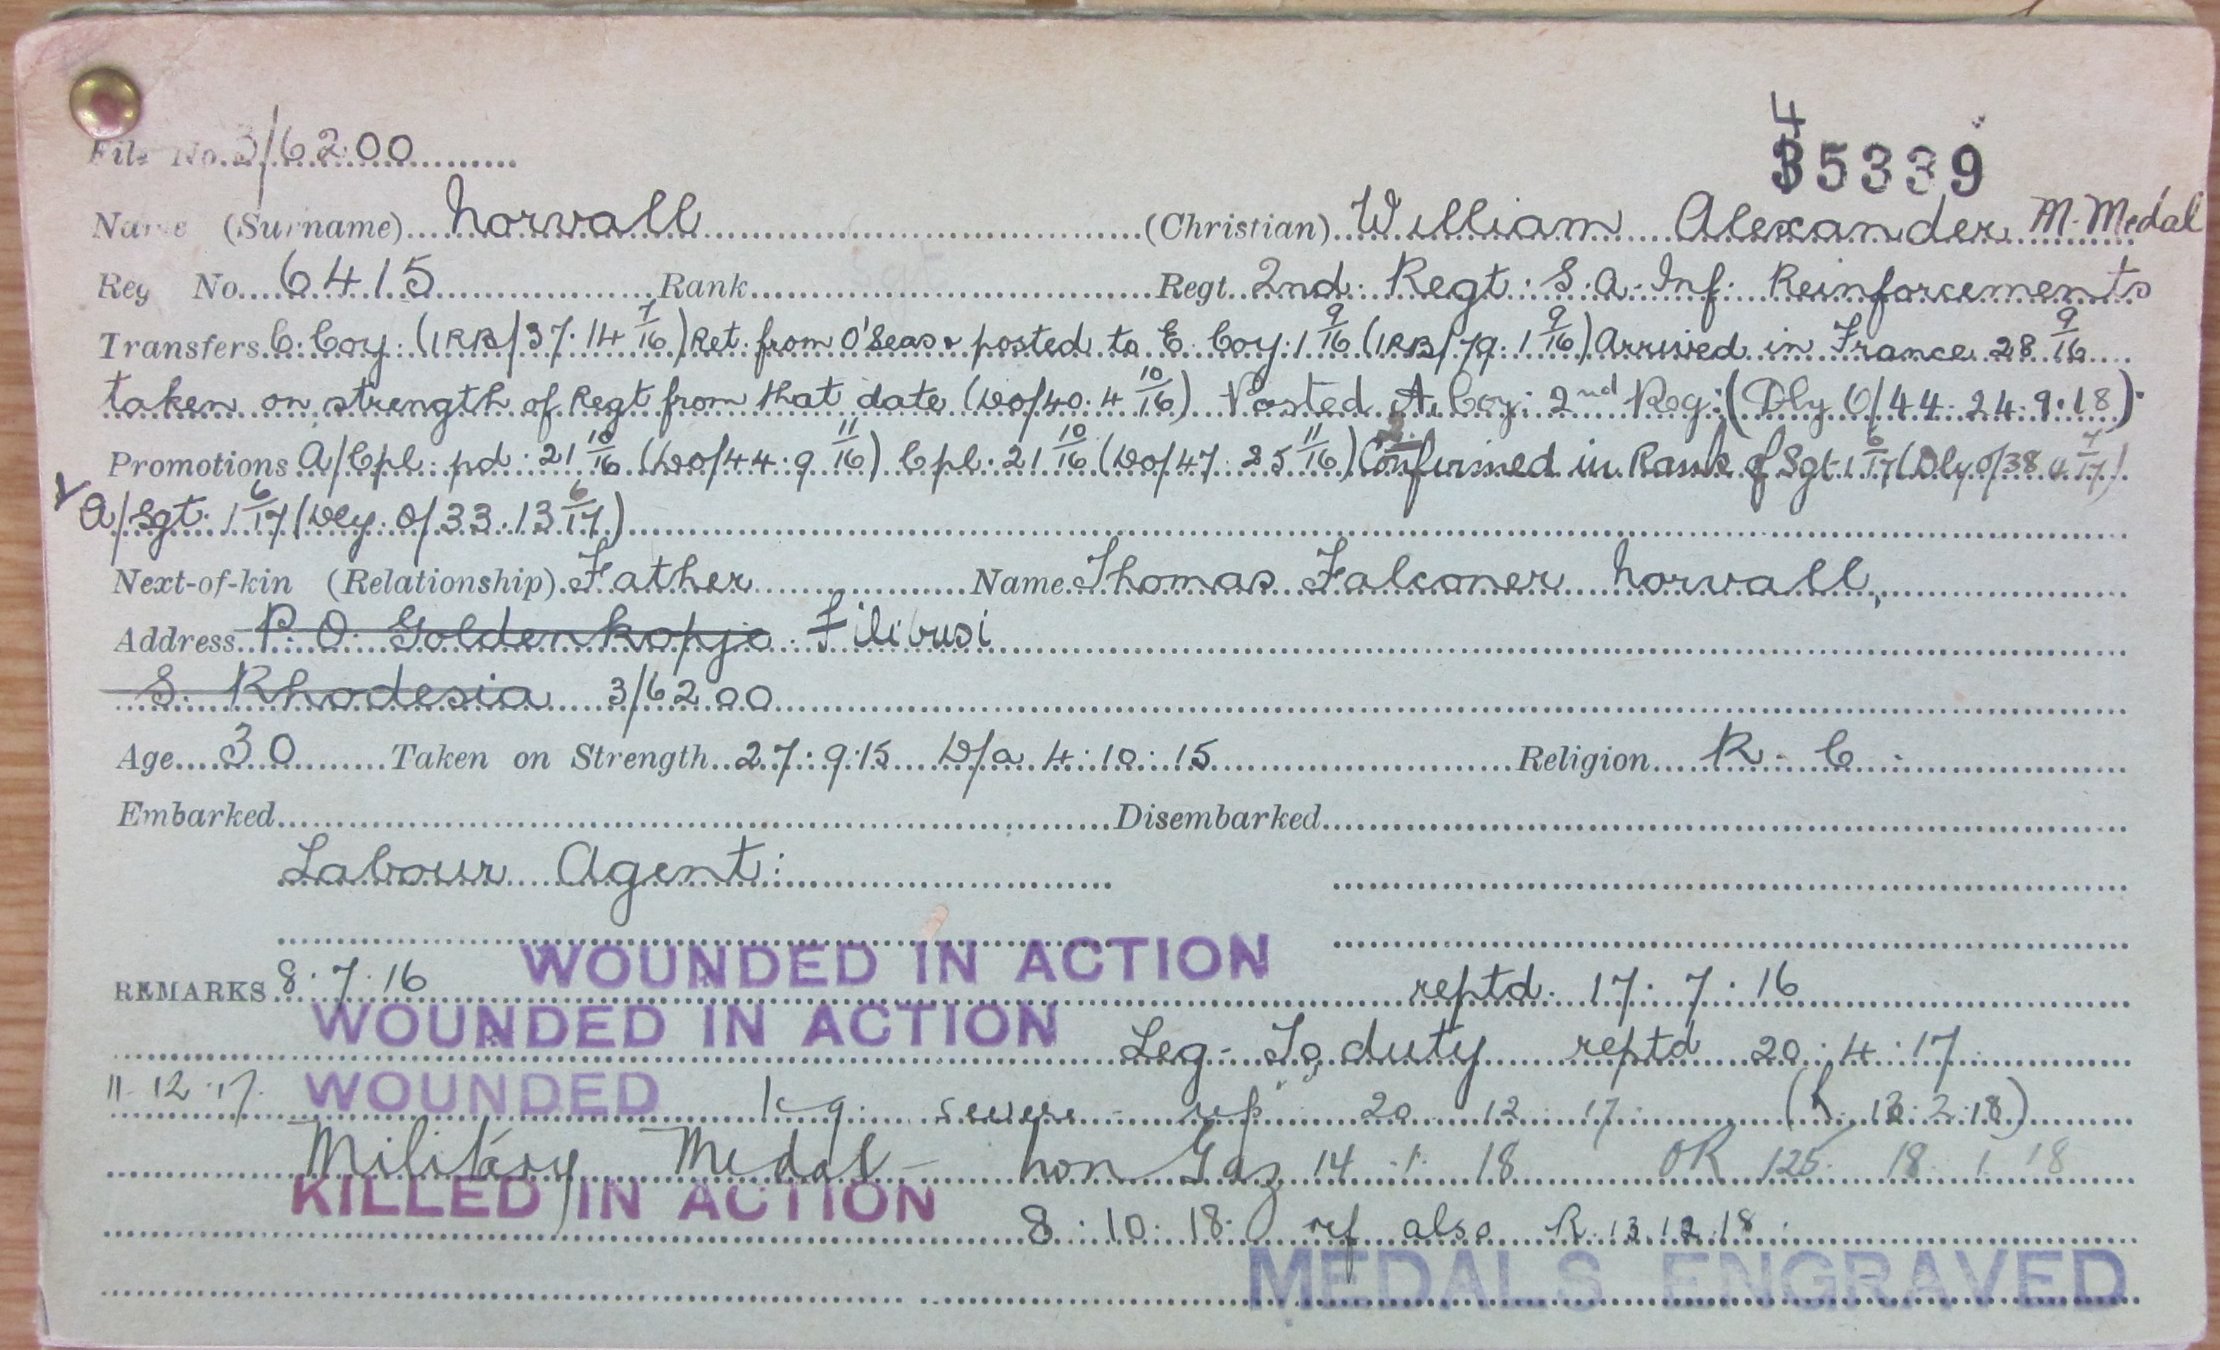 4
35339
File No. 3/6200
Name (Surname) Norvall (Christian) William Alexander M. Medal
Reg No. 6415 Rank Regt. 2nd. Regt. S. A. Inf. Reinforcements
Transfers C. Coy. (1RB/37. 14 7/16) Ret. from O'Seas & posted to E. Coy. 1 9/16 (1RB/79. 1 9/16) Arrived in France 28 9/16
taken on strength of Regt from that date (DO/40. 4 10/16) Posted A. Coy. 2nd Reg. (Dly O/44. 24.9.18).
Promotions A/Cpl. pd. 21 10/16 (DO/44. 9 11/16) Cpl. 21 10/16 (DO/47. 25 11/16) Confirmed in Rank of Sgt 1 6/17 (Dly O/38 4 7/17)
A/Sgt. 1 6/17 (Dly. O/33. 13 6/17)
Next-of-kin (Relationship) Father Name Thomas Falconer Norvall,
Address P. O. Goldenkopje Filibusi
S. Rhodesia 3/6200
Age 30 Taken on Strength 27.9.15 D/a 4.10.15 Religion R. C.
Embarked Disembarked
Labour Agent.
REMARKS 8.7.16 WOUNDED IN ACTION reptd. 17.7.16
WOUNDED IN ACTION Leg - To duty reptd 20.4.17
11.12.17. WOUNDED severe - rep 20 12 17 (R. 13.2.18)
Military Medal - Lon Gaz 14.1.18 OR 125 18 1 18
KILLED IN ACTION 8.10.18. ref also R. 13.12.18.
MEDALS ENGRAVED